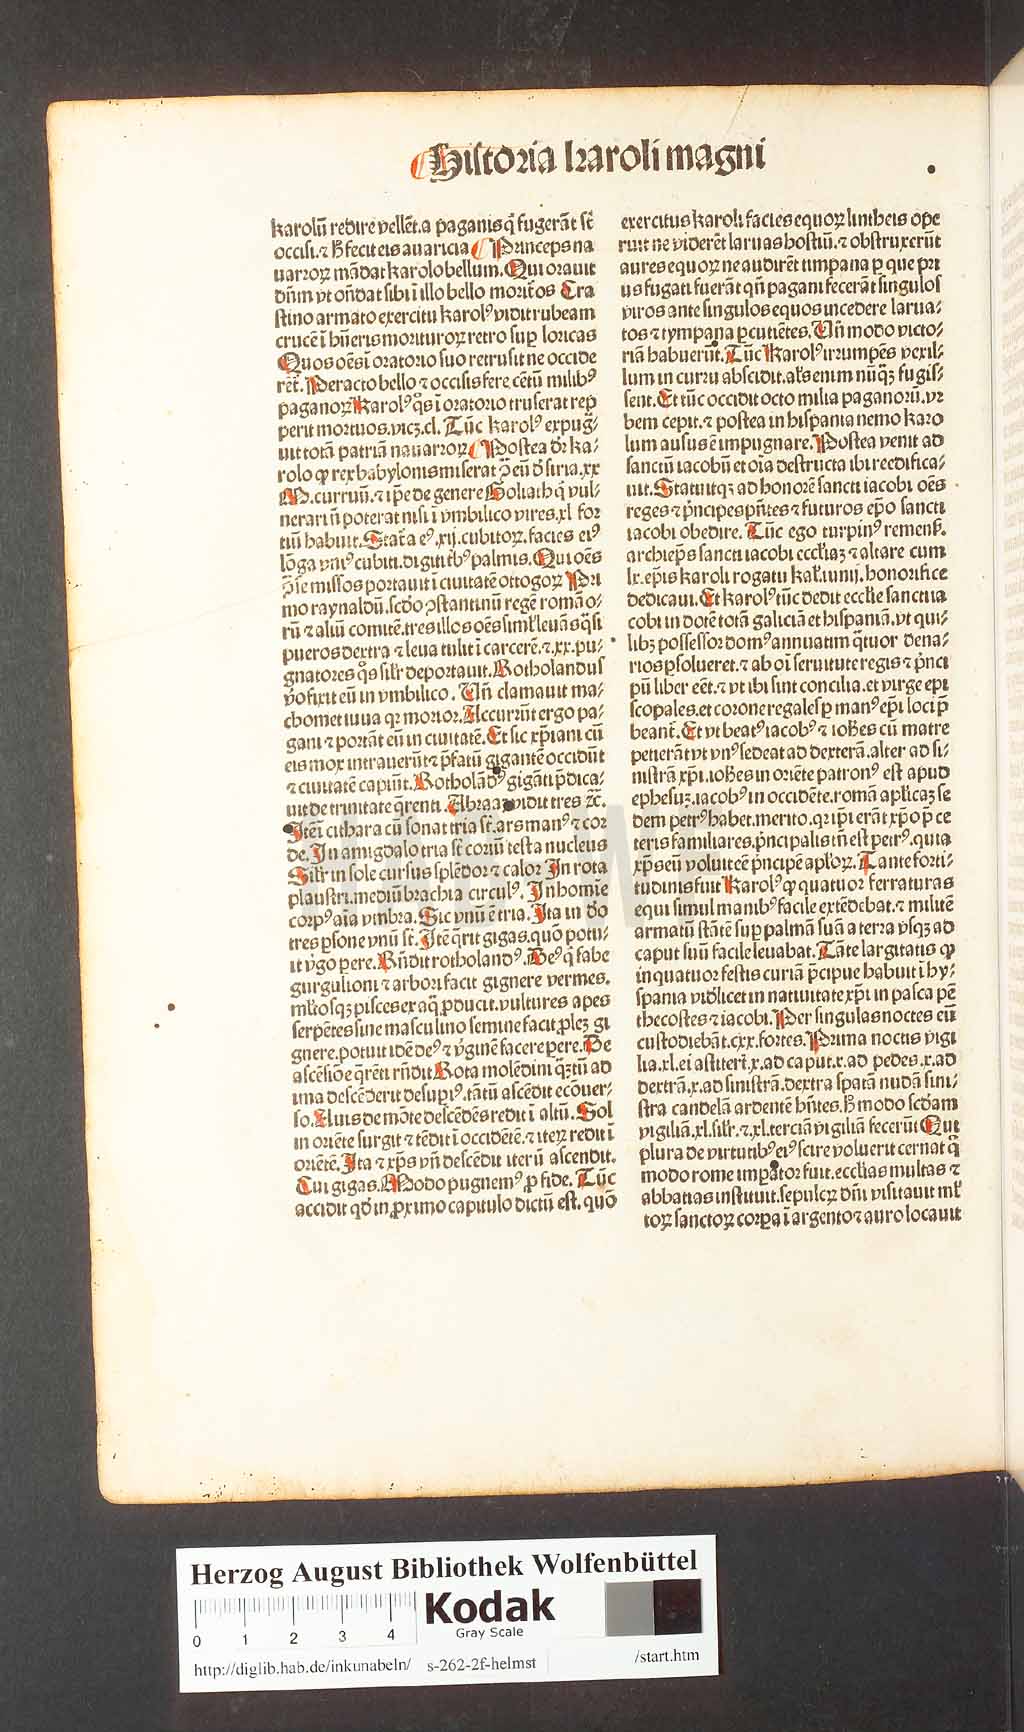 Historia karoli magni
karolū redire vellēt. a paganis q̄ fugerāt sт̄
occisi. ⁊ h̄ fecit eis avaricia Princeps na
uarroꝝ mādat karolo bellum. Qui orauit
dn̄m vt on̄dat sibi ī illo bello morit̄os Cra
stino armato exercitu karolꝰ vidit rubeam
crucē ī hūeris morituroꝝ retro suꝑ loricas
Quos oēs ī oratorio suo retrusit ne occide
rēt̄. Peracto bello ⁊ occisis fere. cētū milibꝰ
paganoꝝ karolꝰ q̄s ī oratorio truserat rep
perit mortuos. vicꝫ. cl. Tūc karolꝰ expug-
uit totā patriā nauarroꝝ Postea dr̄ ka-
rolo ꝙ rex babylonis miserat ꝯ̄ eū d̄ siria. xx
M. turcuꝝ. ⁊ ip̄e de genere Goliath q̄ vul-
nerari n̄ poterat nisi ī vmbilico vires. xl for
tiū habuit. Stat̄a eꝰ. xij. cubitoꝝ. facies eiꝰ
lōga vniꝰ cubiti. digiti t̄bꝰ palmis. Qui oēs
ꝯ̄ se missos portauit ī ciuitatē ottogoꝝ Pri
mo raynaldū. scd̄o ꝯstantinū regē romāo-
rū ⁊ aliū comitē. tres illos oēs simł leuās q̄si
pueros dextra ⁊ leua tulit ī carcerē. ⁊. xx. pu-
gnatores q̄s sił̄r deportauit. Rotholandus
v̄o fixit eū in vmbilico. Un̄ clamauit ma-
chomet iuua qꝛ morior. Accurrūt ergo pa-
gani ⁊ portāt eū in ciuitatē. Et sic xp̄iani cū
eis mox intrauerūt ⁊ p̄fatū gigantē occidūt
⁊ ciuitatē capiūt. Rotholādꝰ gigāti p̄dica-
uit de trinitate q̄renti. Abraā vidit tres ⁊c̄.
Itē ī cithara cū sonat tria sт̄. ars manꝰ ⁊ cor
de. In amigdalo tria sт̄ coriū testa nucleus
Sił̄r in sole cursus splēdor ⁊ calor In rota
plaustri. mediū brachia circulꝰ. In homīe
corpꝰ aīa vmbra. Sic vnū ē tria. Ita in d̄o
tres ꝑsone vnū sт̄. Itē q̄rit gigas. quō potu-
it v̄go ꝑere. Rn̄dit rotholandꝰ. Deꝰ q̄ fabe
gurgulioni ⁊ arbori facit gignere vermes.
mł̄tosqꝫ pisces ex aq̄ ꝓducit. vultures apes
serpētes sine masculino semine facit ꝓlez gi
gnere. potuit idē deꝰ ⁊ v̄ginē facere ꝑere. De
ascēsiōe q̄rēti rn̄dit Rota molēdini q̄ꝫtū ad
ima descēderit desuꝑiꝰ. tātū ascēdit ecōuer-
so. Auis de mōte descēdēs redit ī altū. Sol
in oriēte surgit ⁊ tēdit ī occidētē. ⁊ iteꝝ redit ī
oriētē. Ita ⁊ xp̄s vn̄ descēdit iterū ascendit.
Cui gigas. Modo pugnemꝰ ꝓ fide. Tūc
accidit qd̄ in ꝓximo capitulo dictū est. quō
exercitus karoli facies equoꝝ lintheis ope
ruit ne viderēt laruas hostiū. ⁊ obstruxerūt
aures equoꝝ ne audirēt timpana ꝑ que pri
us fugati fuerāt qn̄ pagani fecerāt singulos
viros ante singulos equos incedere larua-
tos ⁊ tympana ꝑcutiētes. Un̄ modo victo-
riā habuerūt. Tūc karolꝰ irrumpēs vexil-
lum in curru abscidit. als̄ enim nūqꝫ fugis-
sent. Et tūc occidit octo milia paganorū. vr
bem cepit. ⁊ postea in hispania nemo karo
lum ausus ē impugnare. Postea venit ad
sanctū iacobū et oīa destructa ibi reedifica-
uit. Statuitqꝫ ad honorē sancti iacobi oēs
reges ⁊ p̄ncipes pn̄tes ⁊ futuros ep̄o sancti
iacobi obedire. Tūc ego turpinꝰ remens̄.
archiep̄s sancti iacobi eccłiaꝫ ⁊ altare cum
lx. ep̄is karoli rogatu kał. iunij. honorifice
dedicaui. Et karolꝰ tūc dedit eccłie sancti ia
cobi in dotē totā galiciā et hispaniā. vt qui-
libꝫ possessor domꝰ annuatim q̄tuor dena-
rios ꝑsolueret. ⁊ ab oī seruitute regis ⁊ p̄nci
pū liber eēt. ⁊ vt ibi sint concilia. et virge epi
scopales. et corone regales ꝑ manꝰ ep̄i loci p̄
beant̄. Et vt beatꝰ iacobꝰ ⁊ ioh̄es cū matre
petierāt vt vnꝰ sedeat ad dexterā. alter ad si-
nistrā xp̄i. ioh̄es in oriēte patronꝰ est apud
ephesuꝫ. iacobꝰ in occidēte. romā apłicaꝫ se
dem petrꝰ habet. merito. qꝛ ip̄i erāt xp̄o p̄ ce
teris familiares. p̄ncipalis tn̄ est petrꝰ. quia
xp̄s eū voluit eē p̄ncipē apłoꝝ. Tante forti-
tudinis fuit karolꝰ ꝙ quatuor ferraturas
equi simul manibꝰ facile extēdebat. ⁊ militē
armatū stātē suꝑ palmā suā a terra vsqꝫ ad
caput suū facile leuabat. Tāte largitatis ꝙ
in quatuor festis curiā p̄cipue habuit ī hy-
spania videlicet in natiuitate xp̄i in pasca pē
thecostes ⁊ iacobi. Per singulas noctes eū
custodiebāt. cxx. fortes. Prima noctis vigi
lia. xl. ei astiterūt. x. ad caput. x. ad pedes. x. ad
dextrā. x. ad sinistrā. dextra spatā nudā sini-
stra candelā ardentē hn̄tes. h̄ modo scd̄am
vigiliā. xl. sił̄r. ⁊. xl. terciā vigiliā fecerūt Qui
plura de virtutibꝰ eiꝰ scire voluerit cernat q̄
modo rome imꝑator fuit. ecclias multas ⁊
abbatias instituit. sepulcꝝ dn̄i visitauit mł
toꝝ sanctoꝝ corꝑa ī argento ⁊ auro locauit
Herzog August Bibliothek Wolfenbüttel
0 1 2 3 4
Kodak
Gray Scale
http://diglib.hab.de/inkunabeln/ s-262-2f-helmst /start.htm